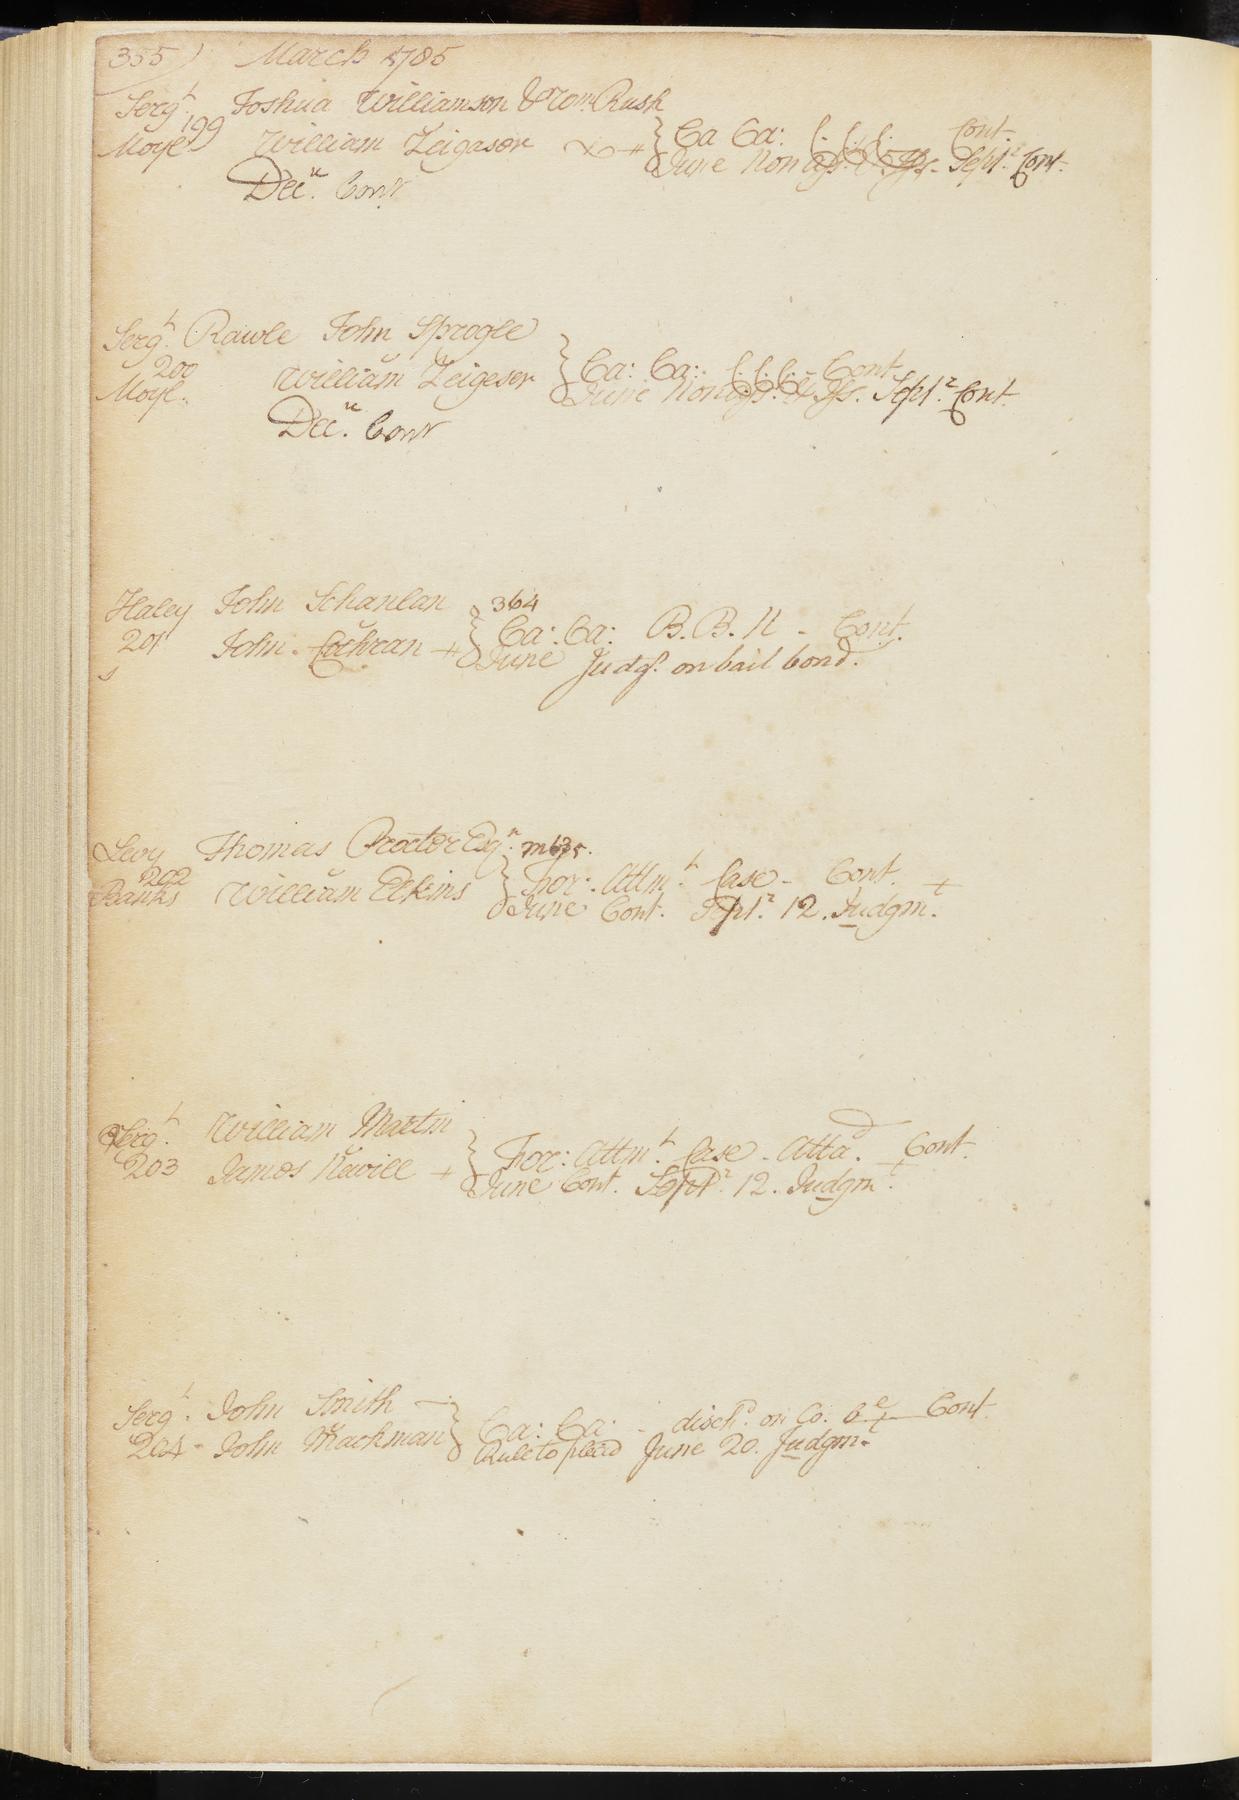 355) March 1785
Sergt. Joshua Williamson &
199
Moyl. William Zeigeser Ca Ca: C. C. C. Cont.
June Non Septr. Cont.
Decr. Cont
Sergt. Rawle John Sprogle
200 William Zeigeser Ca: Ca: C. C. C. - Cont.
Moyl. June Non Septr. Cont.
Decr. Cont
Haley John Schanlan 364
201 John Cochran + Ca: Ca: B. B. N - Cont.
s June Judgt. on bail bond.
Levy Thomas Proctor Esqr.
202
Banks William Elkins For: Attmt. Case - Cont.
June Cont. Septr. 12. Judgmt.
Sergt. William Martin
203 James Nevill + For: Attmt. Case - Attad. Cont.
June Cont. Septr. 12. Judgmt.
Sergt. John Smith
204 - John Mackman Ca: Ca: - dischd. on Co. Be Cont.
Rule to plead June 20. Judgmt.